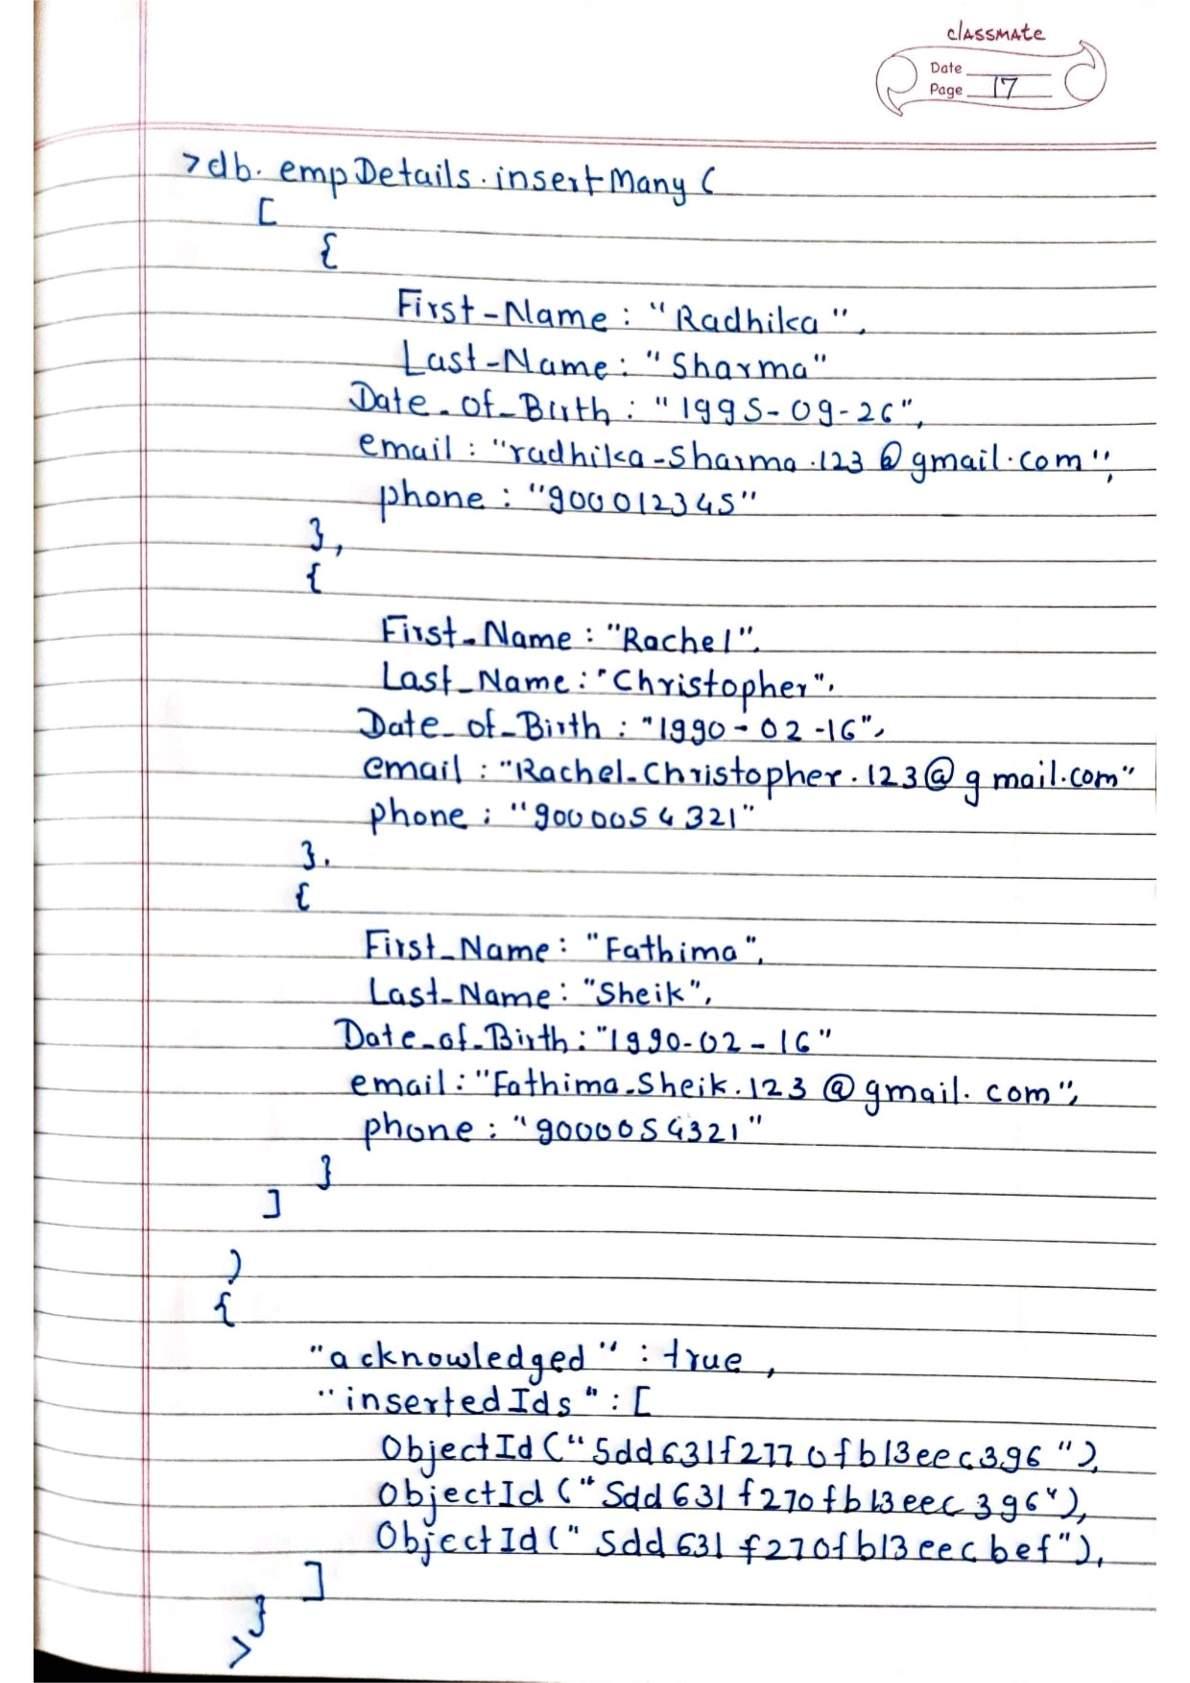 classmate
Date
Page 17
>db. empDetails.insertMany (
[
{
First-Name : "Radhika",
Last-Name : "Sharma"
Date-of-Birth : "1995-09-26",
email : "radhika-Sharma.123@gmail.com",
phone : "900012345"
},
{
First-Name : "Rachel",
Last_Name : "Christopher",
Date-of-Birth : "1990-02-16",
email : "Rachel-Christopher.123@gmail.com"
phone : "9000054321"
},
{
First_Name : "Fathima",
Last-Name : "Sheik",
Date-of-Birth : "1990-02-16"
email : "Fathima-Sheik.123@gmail.com",
phone : "9000054321"
}
]
)
{
"acknowledged" : true,
"insertedIds" : [
ObjectId ("5dd631f2770fb13eec396"),
ObjectId ("5dd631f270fb13eec396"),
ObjectId ("5dd631f270fb13eecbef"),
]
}
>